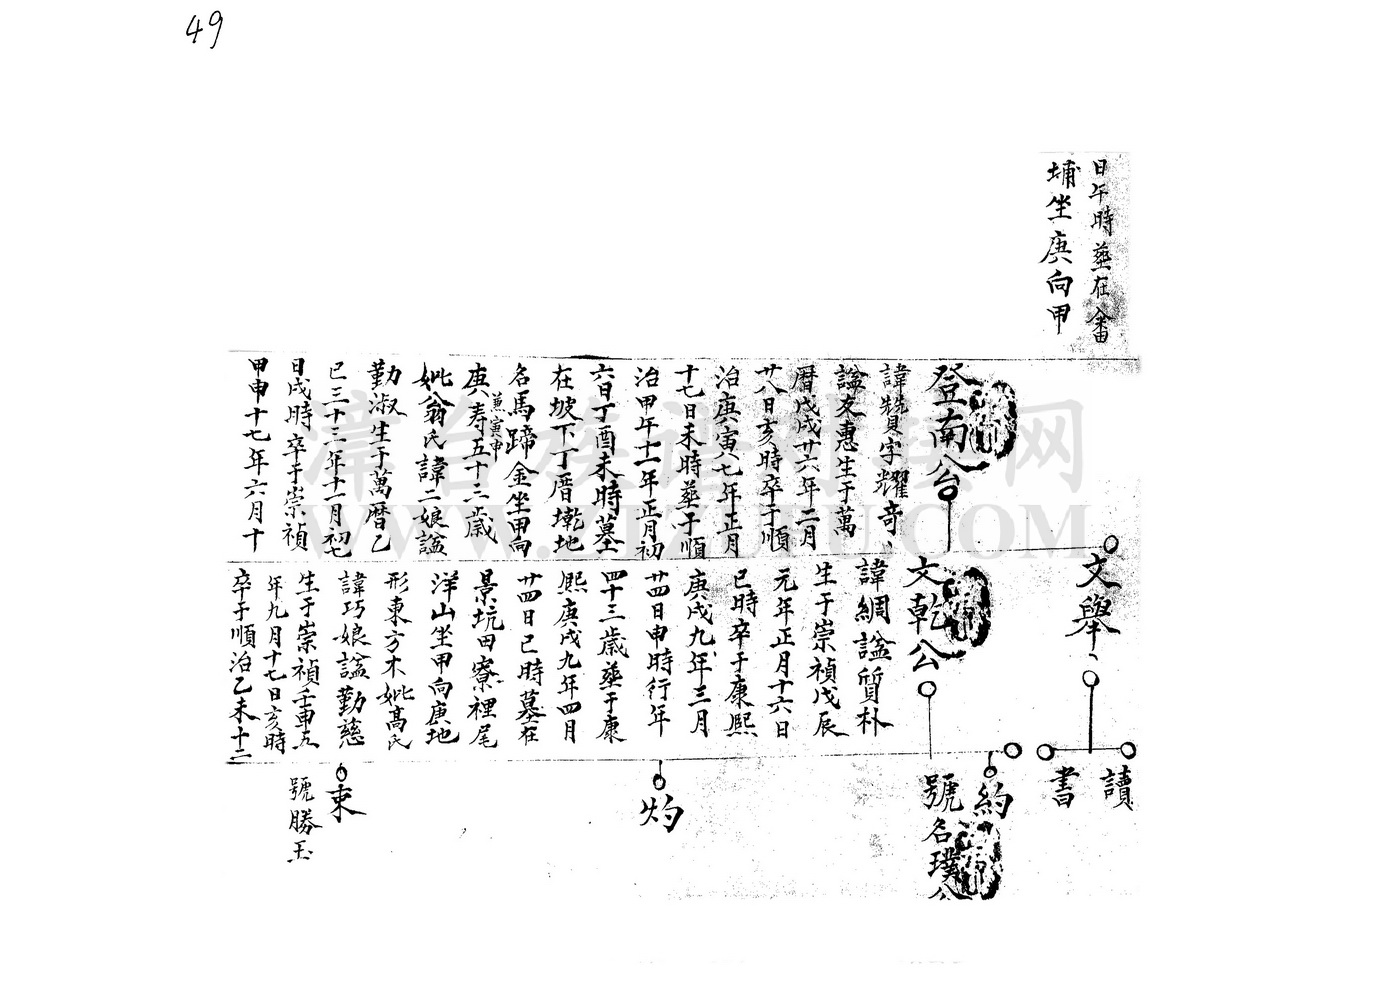 49
日午時葬在番
埔坐庚向甲
登南公
諱賛字耀奇、
諡友惠生于萬
曆戊戌廿六年二月
廿八日亥時卒于順
治庚寅七年正月
十七日未時葬于順
治甲午十一年正月初
六日丁酉未時墓
在坡下丁厝墘地
名馬蹄金坐甲向
庚兼寅申寿五十三歲
妣翁氏諱二娘諡
勤淑生于萬曆乙
巳三十三年十一月初七
日戌時卒于崇禎
甲申十七年六月十
文舉、
文乾公
諱綢諡質朴
生于崇禎戊辰
元年正月十六日
巳時卒于康熙
庚戌九年三月
廿四日申時行年
四十三歲葬于康
熙庚戌九年四月
廿四日巳時墓在
景坑田寮裡尾
洋山坐甲向庚地
形東方木妣髙氏
諱巧娘諡勤慈
生于崇禎壬申五
年九月十七日亥時
卒于順治乙未十二
讀
書
約
號名璞公
灼
束
號勝玉
漳台族谱对接网
WWW.ZTZUPU.COM